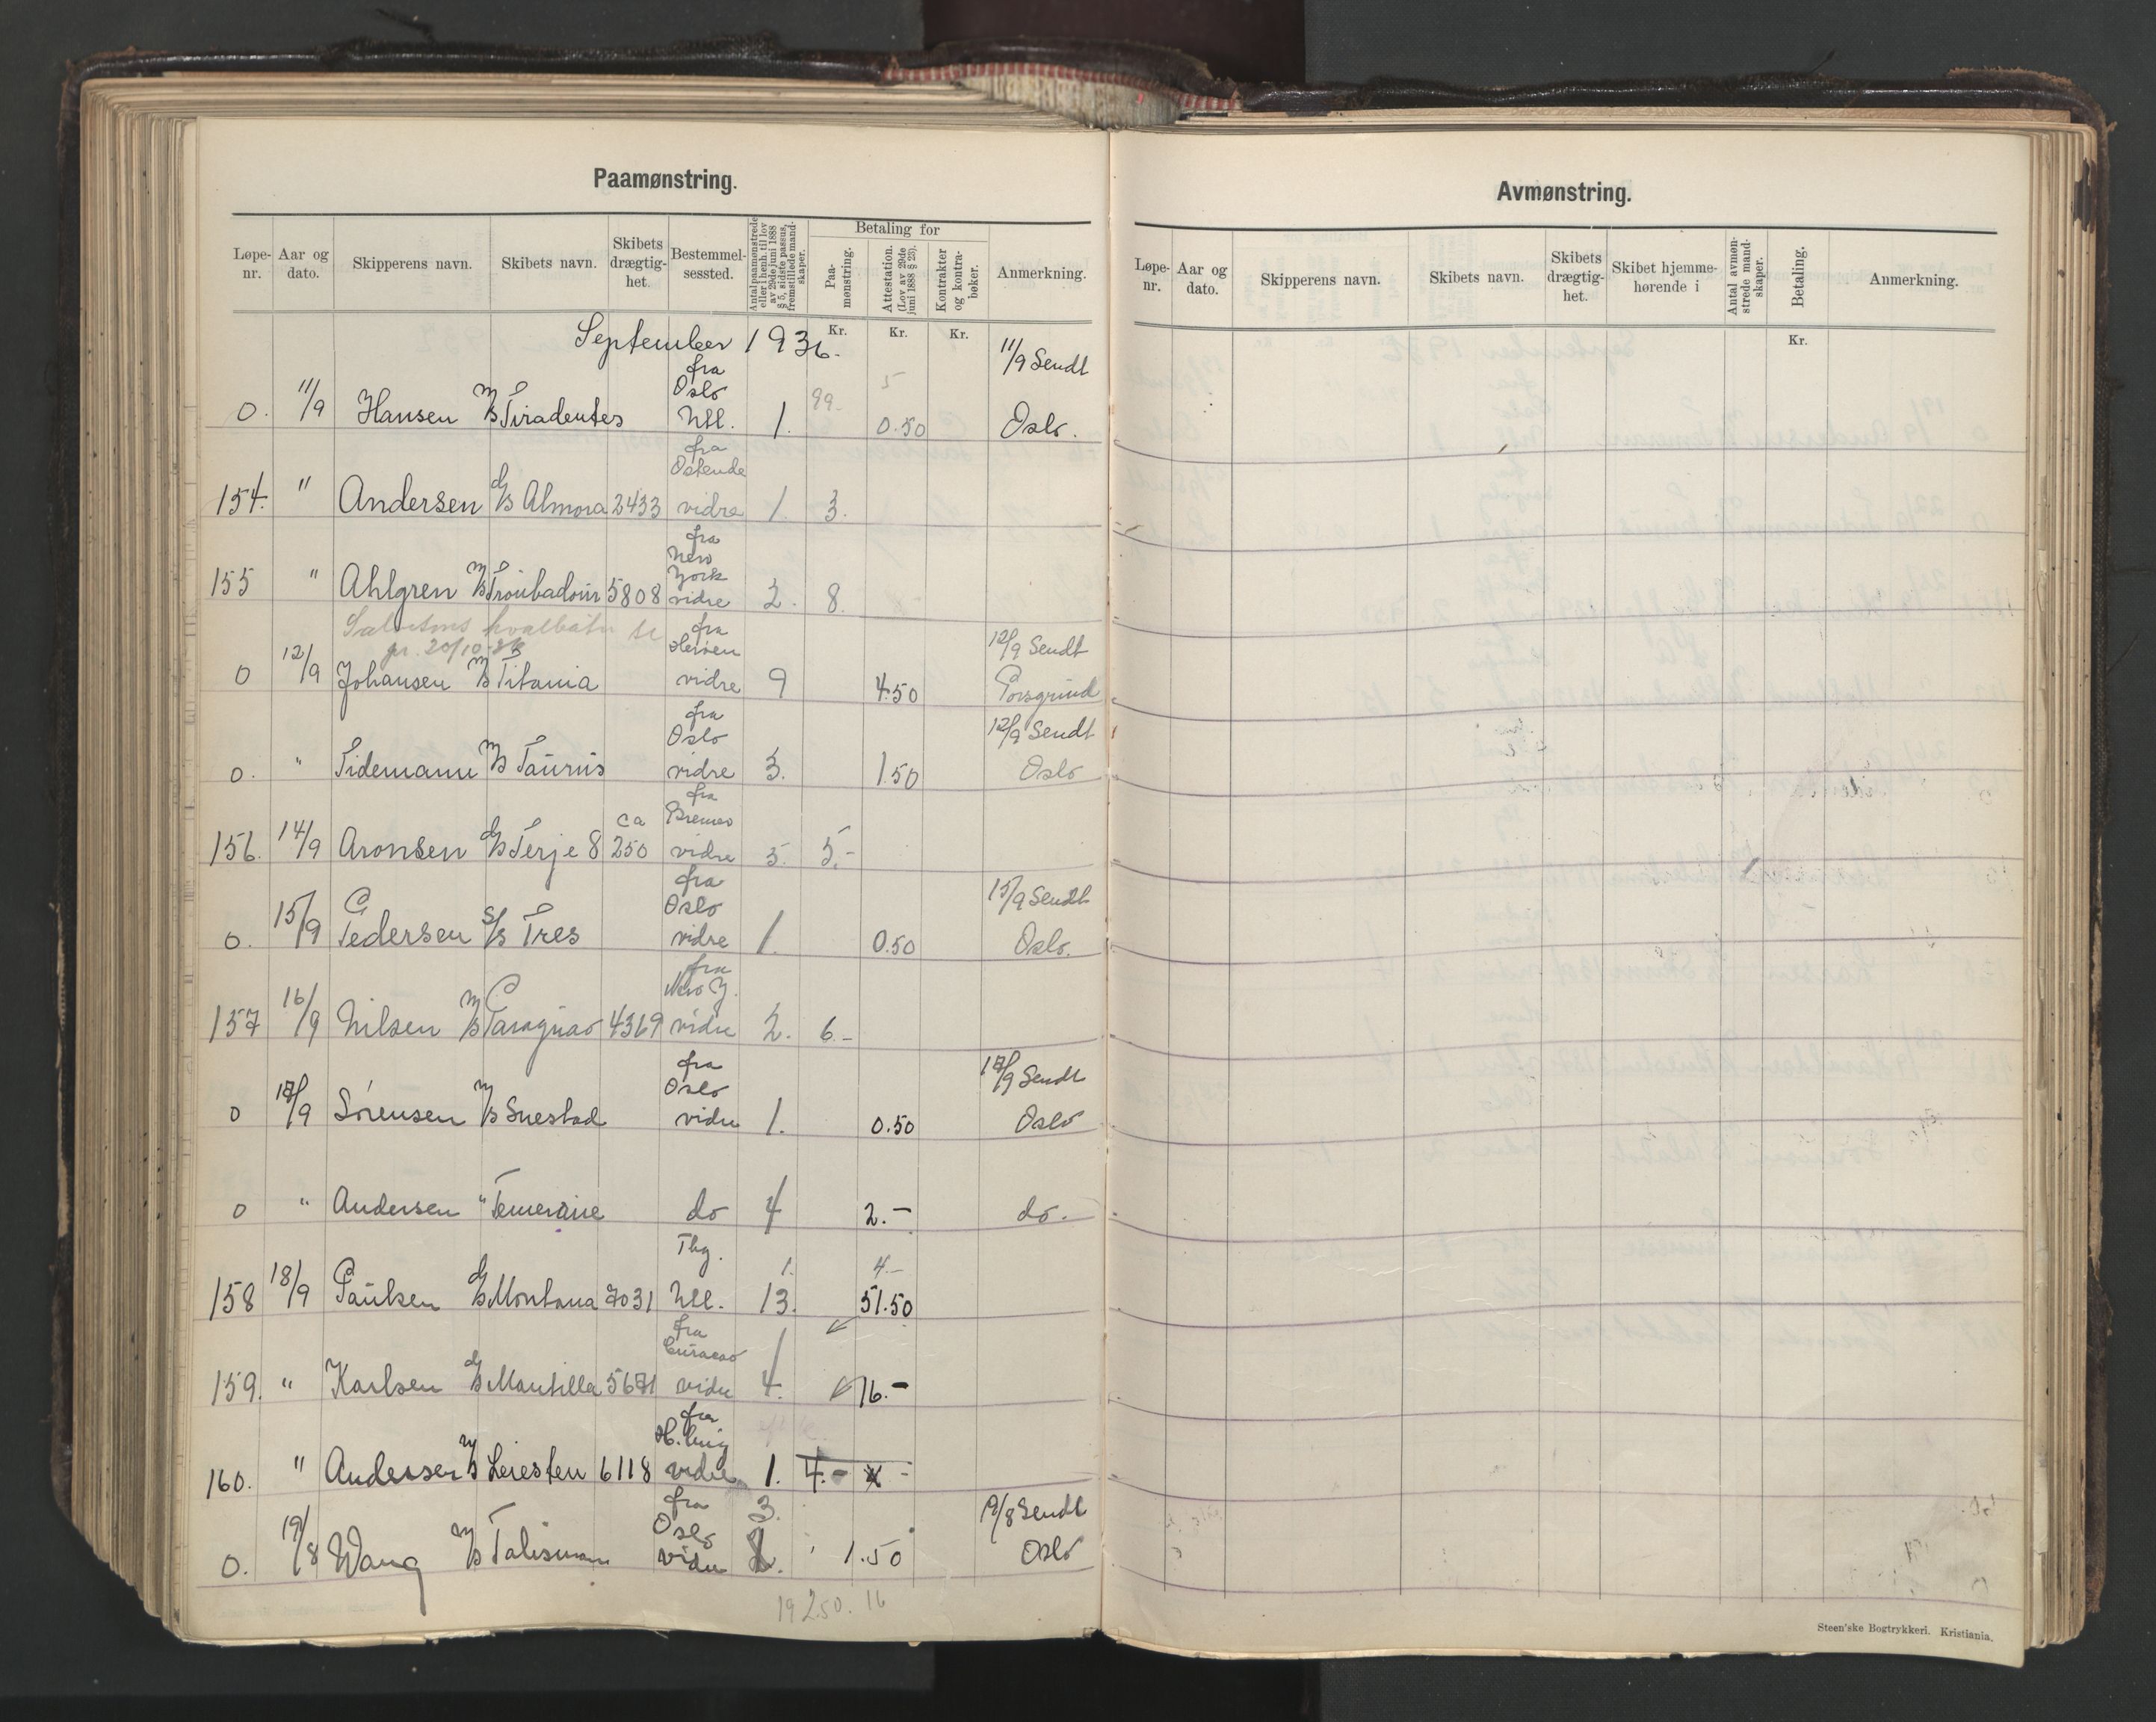 Paamønstring.
Løpe-nr. Aar og dato. Skipperens navn. Skibets navn. Skibets drægtig-het. Bestemmel-sessted. Antal paamønstrede eller i henh. til lov av 29de juni 1888 § 5, sidste passus, fremstillede mand-skaper. Betaling for Paa-mønstring. Attestation. (Lov av 29de juni 1888 § 23). Kontrakter og kontra-bøker. Anmerkning.
Kr. Kr. Kr.
September 1936.
fra 11/9 Sendt
Oslo 99. 5
0. 11/9 Hansen M/S Tiradentes Utl. 1. 0.50 Oslo.
fra
Ostende
154. " Andersen d/s Almora 2433 vidre 1. 3.
fra
New
York
155 " Ahlgren M/S Troubadour 5808 vidre 2. 8.
fra
gr. 20/10-36 12/9 Sendt
0 12/9 Johansen M/S Titania vidre 9 4.50 Porsgrund
fra 12/9 Sendt
Oslo
0. " Tidemann M/S Taurus vidre 3. 1.50 Oslo
fra
ca Bremen
156. 14/9 Aronsen d/s Terje 8 250 vidre 5. 5.-
fra
Oslo 15/9 Sendt
0. 15/9 Pedersen S/S Tres vidre 1. 0.50 Oslo.
fra
New Y.
157 16/9 Nilsen M/S Paraguay 4369 vidre 2. 6.-
fra
Oslo 17/9 Sendt
0 17/9 Sørensen M/S Snestad vidre 1. 0.50 Oslo
0 " Andersen " Temeraire do 4 2.- do.
Tbg. 1. 4.-
158 18/9 Paulsen d/s Montana 7031 Utl. 13. 51.50
fra
Curacao
159. " Karlsen d/s Mantilla 5671 vidre 4. 16.-
fra
160. " Andersen M/S Leiesten 6118 vidre 1. 4.-
fra 3.
Oslo 19/8 Sendt
0. 19/8 Wang M/S Talisman vidre 1.50 Oslo
19 250. 16
Avmønstring.
Løpe-nr. Aar og dato. Skipperens navn. Skibets navn. Skibets drægtig-het. Skibet hjemme-hørende i Antal avmøn-strede mand-skaper. Betaling. Anmerkning.
Kr.
Steen'ske Bogtrykkeri. Kristiania.